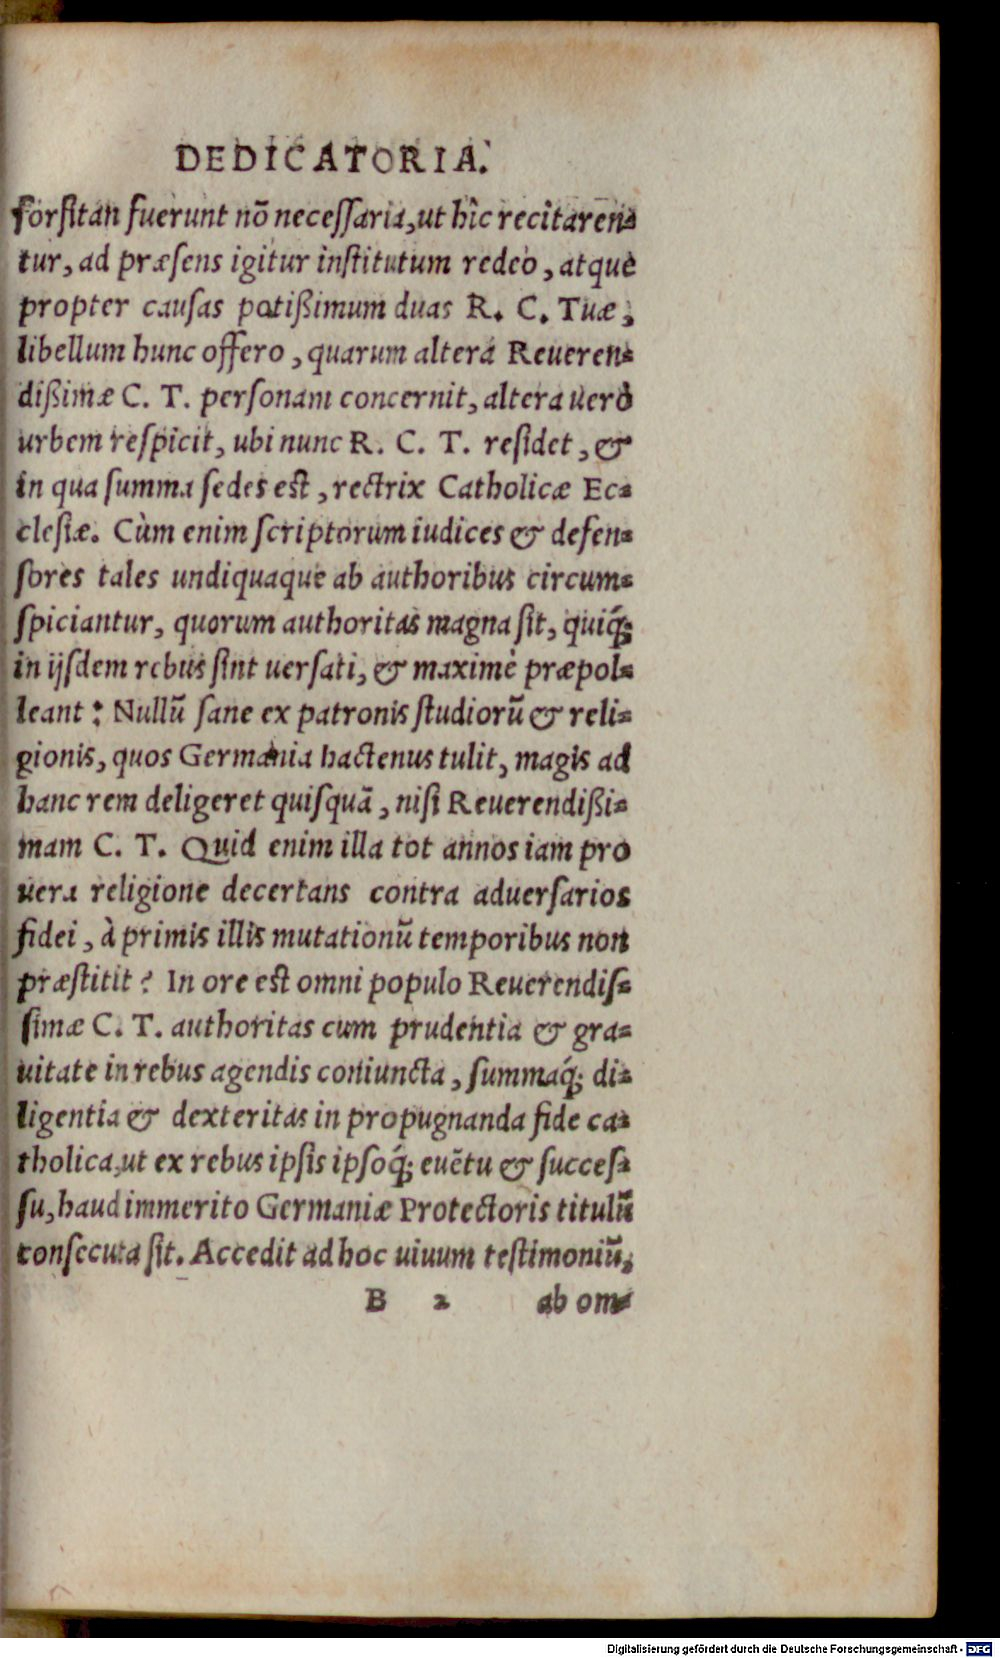 DEDICATORIA.
forſitan fuerunt nõ neceſſaria, ut hîc recitaren⸗
tur, ad præſens igitur inſtitutum redeo, atque
propter cauſas potißimum duas R. C. Tuæ,
libellum hunc offero, quarum altera Reueren⸗
dißimæ C. T. perſonam concernit, altera uerò
urbem reſpicit, ubi nunc R. C. T. reſidet, &
in qua ſumma ſedes est, rectrix Catholicæ Ec⸗
cleſiæ. Cùm enim ſcriptorum iudices & defen⸗
ſores tales undiquaque ab authoribus circum⸗
ſpiciantur, quorum authoritas magna ſit, quiq́;
in ijſdem rebus ſint uerſati, & maximè præpol⸗
leant: Nullũ ſane ex patronis ſtudiorũ & reli⸗
gionis, quos Germania hactenus tulit, magis ad
hanc rem deligeret quiſquã, niſi Reuerendißi⸗
mam C. T. Quid enim illa tot annos iam pro
uera religione decertans contra aduerſarios
fidei, à primis illis mutationũ temporibus non
præſtitit? In ore est omni populo Reuerendiſ⸗
ſimæ C. T. authoritas cum prudentia & gra⸗
uitate in rebus agendis coniuncta, ſummaq́; di⸗
ligentia & dexteritas in propugnanda fide ca⸗
tholica, ut ex rebus ipſis ipſoq́; euẽtu & ſucceſ⸗
ſu, haud immerito Germaniæ Protectoris titulũ
conſecuta ſit. Accedit ad hoc uiuum teſtimoniũ,
B 2 ab om⸗
Digitalisierung gefördert durch die Deutsche Forschungsgemeinschaft - DFG